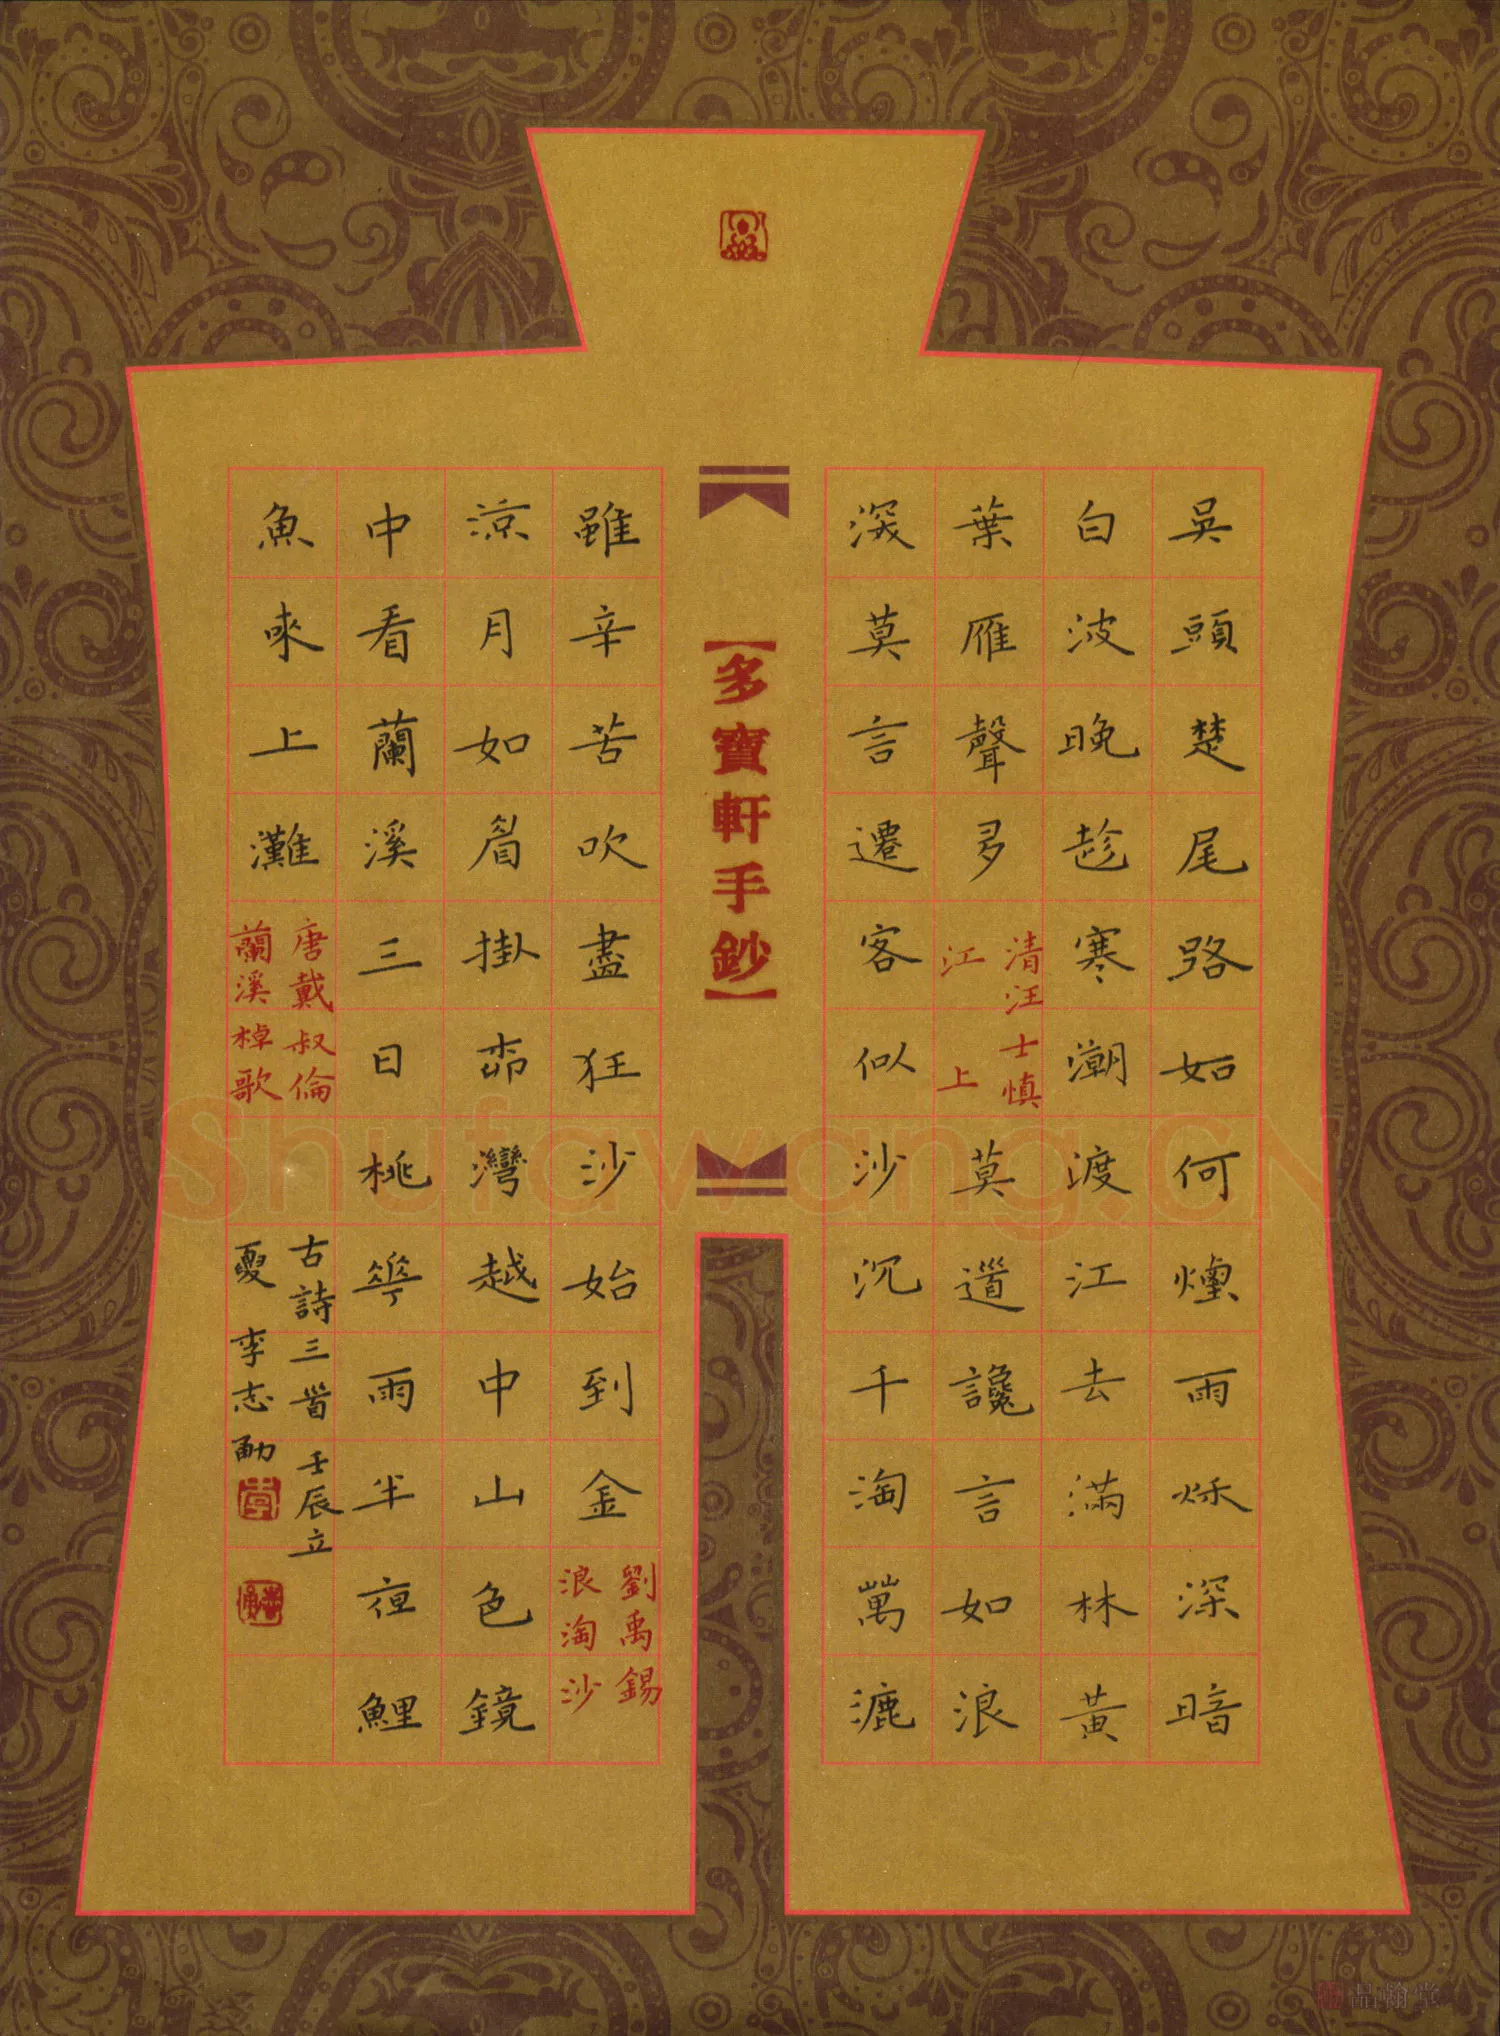 吳頭楚尾路如何煙雨秌深暗
白波晚趁寒潮渡江去滿林黃
葉雁聲多
清汪士慎
江上
莫道讒言如浪
深莫言遷客似沙沉千淘萬漉
【多寶軒手鈔】
雖辛苦吹盡狂沙始到金
劉禹錫
浪淘沙
涼月如眉掛柳灣越中山色鏡
中看蘭溪三日桃花雨半夜鯉
魚來上灘
唐戴叔倫
蘭溪棹歌
古詩三首壬辰立
夏李志勇
Shufawang.CN
品翰堂